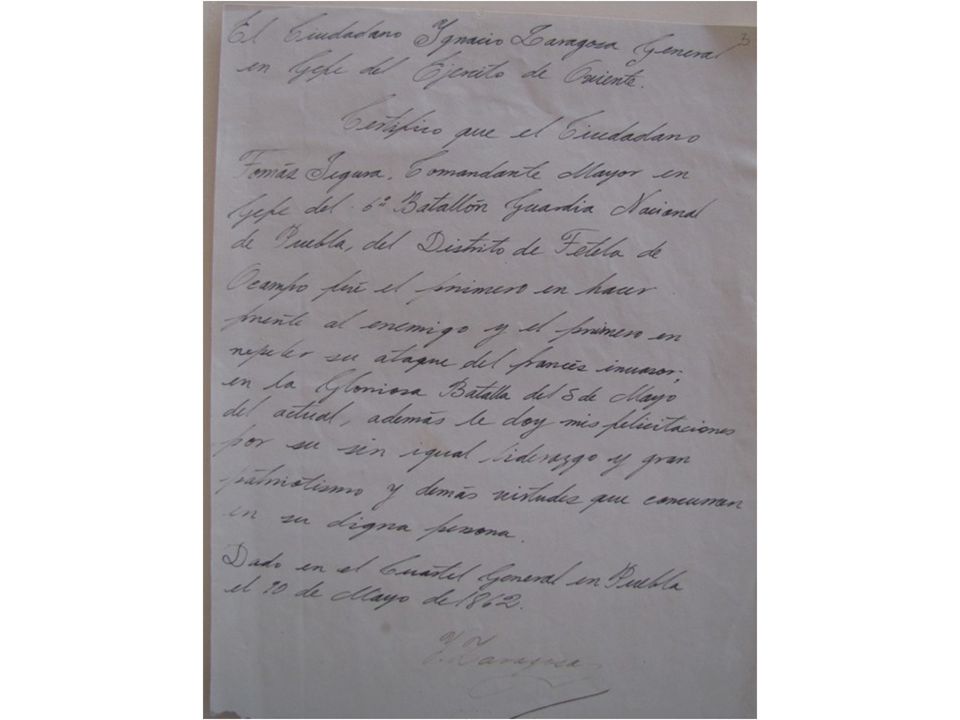 3
El Ciudadano Ygnacio Zaragosa General
en Gefe del Ejercito de Oriente.
Certifico que el Ciudadano
Tomás Segura, Comandante Mayor en
Gefe del 6º Batallón Guardia Nacional
de Puebla, del Distrito de Tetela de
Ocampo fué el primero en hacer
frente al enemigo y el primero en
repeler su ataque del francés invasor,
en la Gloriosa Batalla del 5 de Mayo
del actual, además le doy mis felicitaciones
por su sin igual liderazgo y gran
patriotismo y demás virtudes que concurren
en su digna persona.
Dado en el Cuartel General en Puebla
el 10 de Mayo de 1862.
Y. Zaragosa